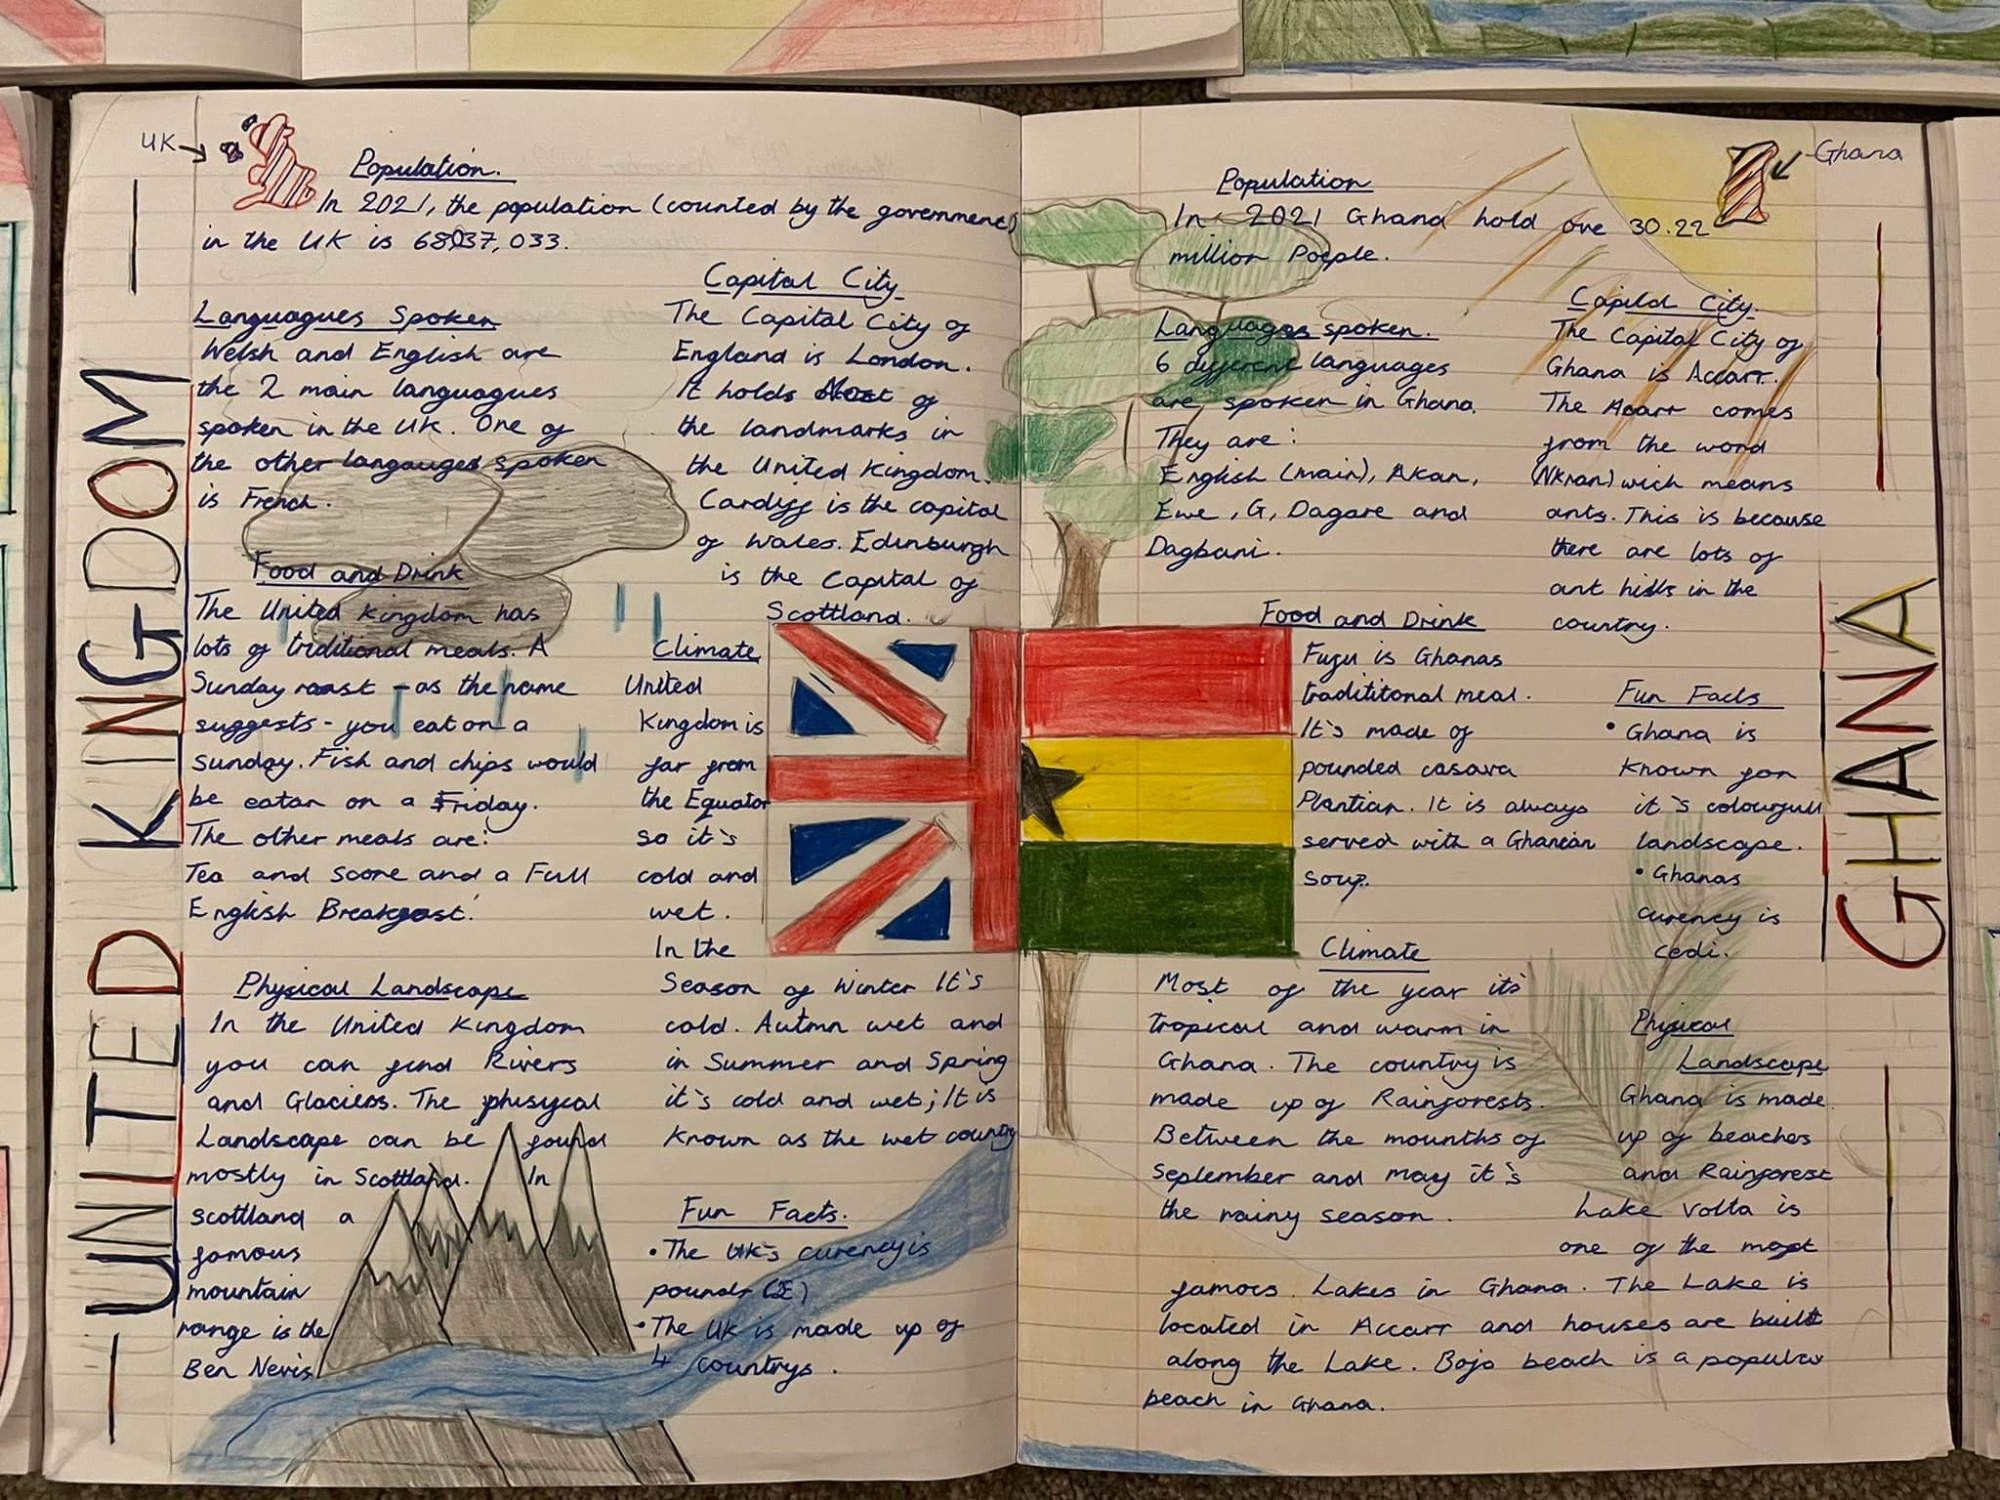 UK
Population.
In 2021, the population (counted by the government)
in the UK is 68,037,033.
Languagues Spoken
Welsh and English are
the 2 main languagues
spoken in the UK. One of
the other langauges spoken
is French.
Food and Drink
The United Kingdom has
lots of traditional meals. A
Sunday roast - as the name
suggests - you eat on a
Sunday. Fish and chips would
be eatan on a Friday.
The other meals are:
Tea and Scone and a Full
English Breakfast!
Physical Landscape
In the United Kingdom
you can find Rivers
and Glaciers. The phisycal
Landscape can be found
mostly in Scottland. In
scottland a
famous
mountain
range is the
Ben Nevis
Capital City
The Capital City of
England is London.
It holds Most of
the landmarks in
the United Kingdom.
Cardiff is the capital
of Wales. Edinburgh
is the Capital of
Scottland.
Climate
United
Kingdom is
far from
the Equator
so it's
cold and
wet.
In the
Season of Winter It's
cold. Autmn wet and
in Summer and Spring
it's cold and wet; It is
known as the wet country
Fun Facts.
• The UK's curency is
pounds (£)
• The UK is made up of
4 countrys.
UNITED KINGDOM
Ghana
Population
In 2021 Ghana hold ove 30.22
million Poeple.
Languages spoken.
6 different languages
are spoken in Ghana.
They are:
English (main), Akan,
Ewe, G, Dagare and
Dagbani.
Capital City.
The Capital City of
Ghana is Accarr.
The Acarr comes
from the word
(Nkran) wich means
ants. This is because
there are lots of
ant hills in the
country.
Food and Drink
Fufu is Ghanas
traditional meal.
It's made of
pounded casava
Plantian. It is always
served with a Ghanian
soup.
Fun Facts
• Ghana is
known for
it's colourfull
landscape.
• Ghanas
curency is
cedi.
Climate
Most of the year its
tropical and warm in
Ghana. The country is
made up of Rainforests.
Between the mounths of
September and may it's
the rainy season.
Physical
Landscape
Ghana is made
up of beaches
and Rainforest
Lake Volta is
one of the most
famous Lakes in Ghana. The Lake is
located in Accarr and houses are built
along the Lake. Bojo beach is a popular
beach in Ghana.
GHANA